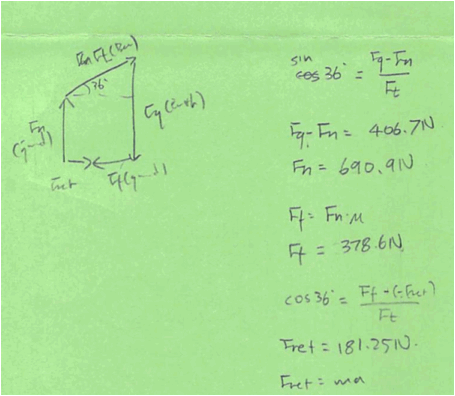 Ft(Bar)
36°
Fn
Fg(Earth)
Fnet
Ff(g
sin
cos 36° = Fg-Fn / Ft
Fg-Fn = 406.7N
Fn = 690.9N
Ff = Fn·μ
Ff = 378.6N
cos 36° = Ff-(-Fnet) / Ft
Fnet = 181.25N.
Fnet = ma